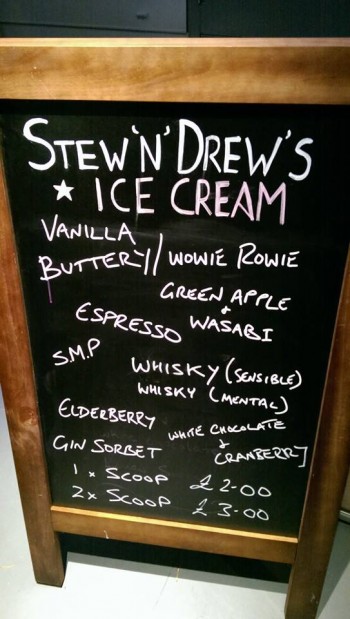 STEW'N'DREW'S
★ ICE CREAM
VANILLA
BUTTERY// WOWIE ROWIE
GREEN APPLE
+
WASABI
ESPRESSO
S.M.P
WHISKY (SENSIBLE)
WHISKY (MENTAL)
ELDERBERRY
WHITE CHOCOLATE
+
CRANBERRY
GIN SORBET
1 x SCOOP £2-00
2x SCOOP £3-00